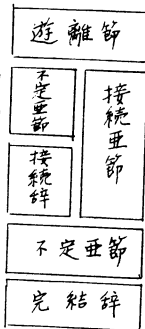 遊離節
不定亜節
接続辞
接続亜節
不定亜節
完結辞